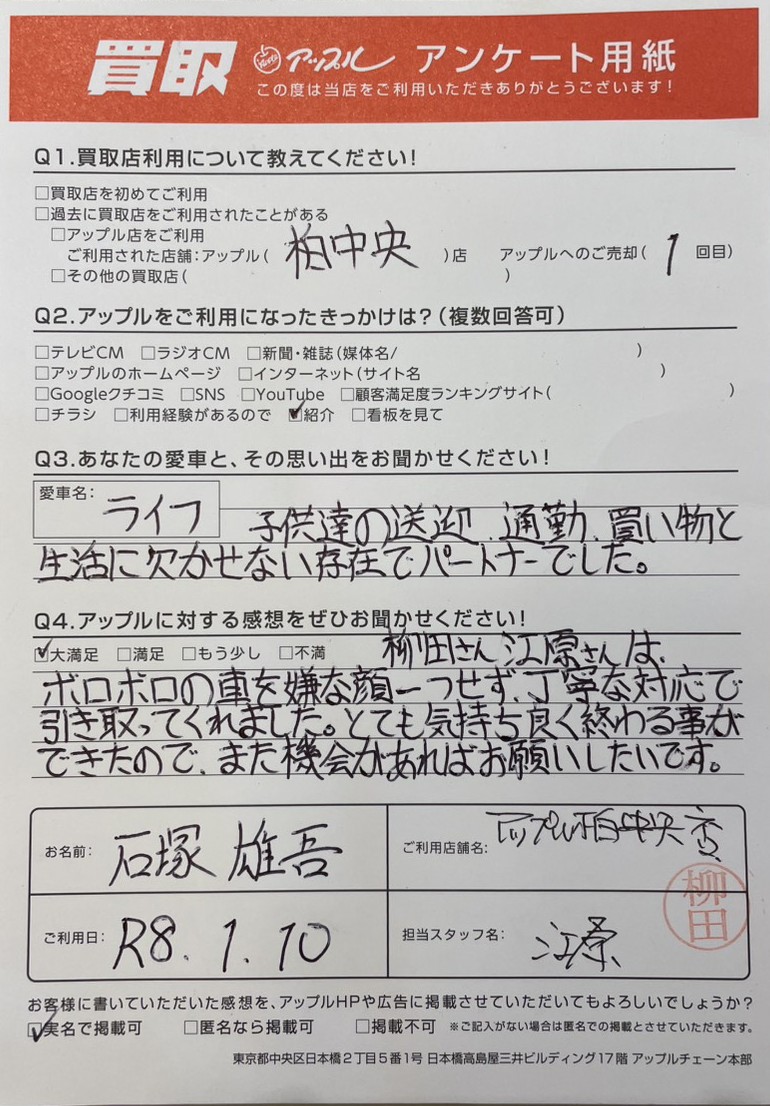 買取 Apple アップル アンケート用紙
この度は当店をご利用いただきありがとうございます！
Q1.買取店利用について教えてください！
□買取店を初めてご利用
□過去に買取店をご利用されたことがある
□アップル店をご利用
ご利用された店舗：アップル（ 柏中央 ）店 アップルへのご売却（ 1 回目）
□その他の買取店（ ）
Q2.アップルをご利用になったきっかけは？（複数回答可）
□テレビCM □ラジオCM □新聞・雑誌（媒体名/ ）
□アップルのホームページ □インターネット（サイト名 ）
□Googleクチコミ □SNS □YouTube □顧客満足度ランキングサイト（ ）
□チラシ □利用経験があるので ☑紹介 □看板を見て
Q3.あなたの愛車と、その思い出をお聞かせください！
愛車名： ライフ 子供達の送迎、通勤、買い物と
生活に欠かせない存在でパートナーでした。
Q4.アップルに対する感想をぜひお聞かせください！
☑大満足 □満足 □もう少し □不満 柳田さん江原さんは、
ボロボロの車を嫌な顔一つせず、丁寧な対応で
引き取ってくれました。とても気持ち良く終わる事が
できたので、また機会があればお願いしたいです。
お名前： 石塚 雄吾 ご利用店舗名： アップル柏中央
柳田
ご利用日： R8.1.10 担当スタッフ名： 江原
お客様に書いていただいた感想を、アップルHPや広告に掲載させていただいてもよろしいでしょうか？
☑実名で掲載可 □匿名なら掲載可 □掲載不可 ※ご記入がない場合は匿名での掲載とさせていただきます。
東京都中央区日本橋２丁目５番１号 日本橋高島屋三井ビルディング17階 アップルチェーン本部